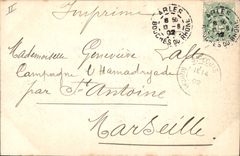 II
Imprimé
ARLES
8 50
BOUCHES DU RHONE
Mademoiselle Geneviève
Campagne l'Hamadryade
par St Antoine
Marseille